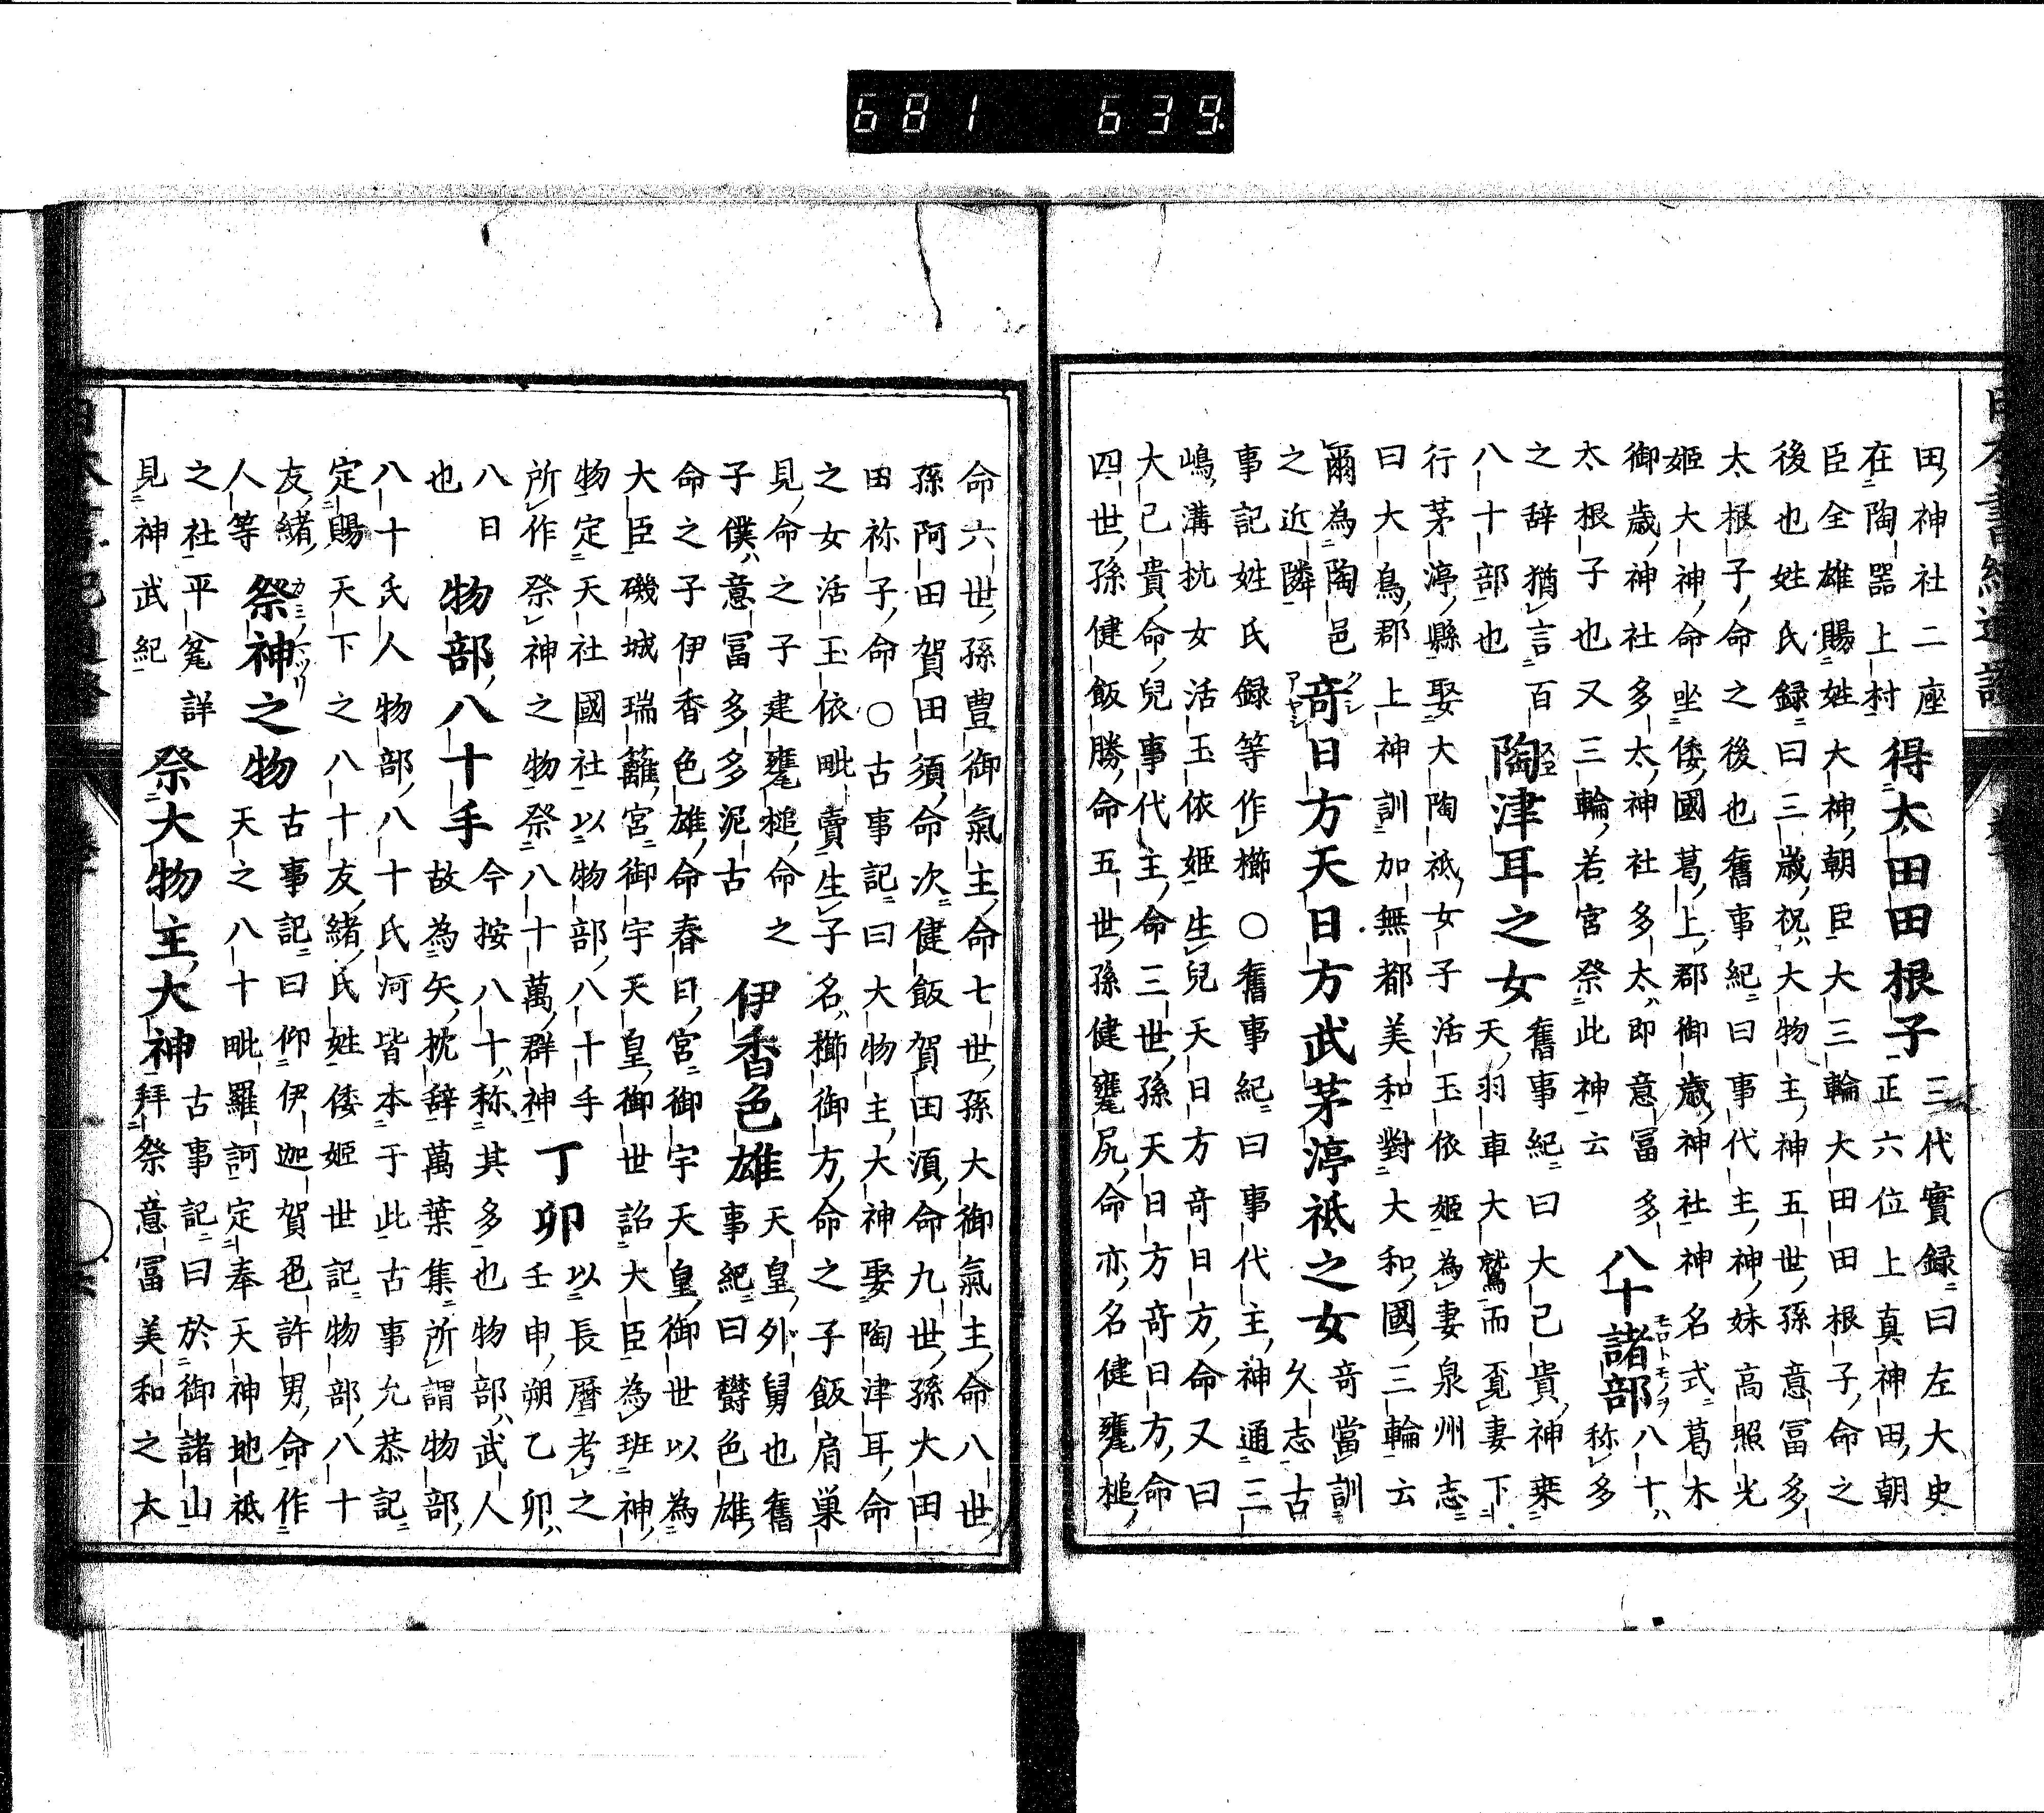 681 639.
田神社二座 得太田田根子 三代實録ニ曰左大史
在ニ陶器上村 正六位上真神田朝
臣全雄賜ニ姓大神朝臣大三輪大田田根子命之
後也姓氏録ニ曰三歳祝ハ大物主神五世孫意冨多
太根子命之後也舊事紀ニ曰事代主神妹高照光
姫大神命坐ニ倭國葛上郡御歳神社神名式ニ葛木
御歳神社多太神社多太ハ即意冨多
太根子也又三輪若宮祭ニ此神云 八十諸部モロトモノヲ 八十ハ称多
之辞猶レ言ニ百
八十部也 陶津耳之女 舊事紀ニ曰大己貴神乗ニ
天羽車大鷲而覔レ妻下ニ
行茅渟縣娶ニ大陶祇女子活玉依姫為レ妻泉州志ニ
曰大鳥郡上神訓ニ加無都美和對ニ大和國三輪云
爾為ニ陶邑
之近隣 竒クシアヤシ日方天日方武茅渟祇之女 竒當レ訓ニ
久志古
事記姓氏録等作レ櫛○舊事紀ニ曰事代主神通ニ三
嶋溝杭女活玉依姫生レ兒天日方竒日方命又曰
大己貴命兒事代主命三世孫天日方竒日方命
四世孫健飯勝命五世孫健甕尻命亦名健甕槌
命六世孫豊御氣主命七世孫大御氣主命八世
孫阿田賀田須命次ニ健飯賀田須命九世孫大田
田祢子命○古事記ニ曰大物主大神娶ニ陶津耳命
之女活玉依毗賣生レ子名ハ櫛御方命之子飯肩巢
見命之子建甕槌命之
子僕ハ意冨多多泥古 伊香色雄 天皇外舅也舊
事紀ニ曰欝色雄
命之子伊香色雄命春日宮ニ御宇天皇御世以為ニ
大臣磯城瑞籬宮ニ御宇天皇御世詔大臣為レ班ニ神
物定ニ天社國社以ニ物部八十手
所レ作祭レ神之物祭ニ八十萬群神 丁卯 以ニ長曆考レ之
壬申朔乙卯ハ
八日
也 物部八十手 今按八十ハ称ニ其多也物部ハ武人
故為ニ矢枕辞萬葉集ニ所レ謂物部
八十氏人物部八十氏河皆本于此古事允恭記ニ
定賜天下之八十友緒氏姓倭姫世記ニ物部八十
友緒
人等 祭神カミマツリ之物 古事記ニ曰仰ニ伊迦賀色許男命作ニ
天之八十毗羅訶定ニ奉天神地祇
之社平瓮詳
見ニ神武紀 祭ニ大物主大神 古事記ニ曰於ニ御諸山
拜ニ祭意冨美和之大